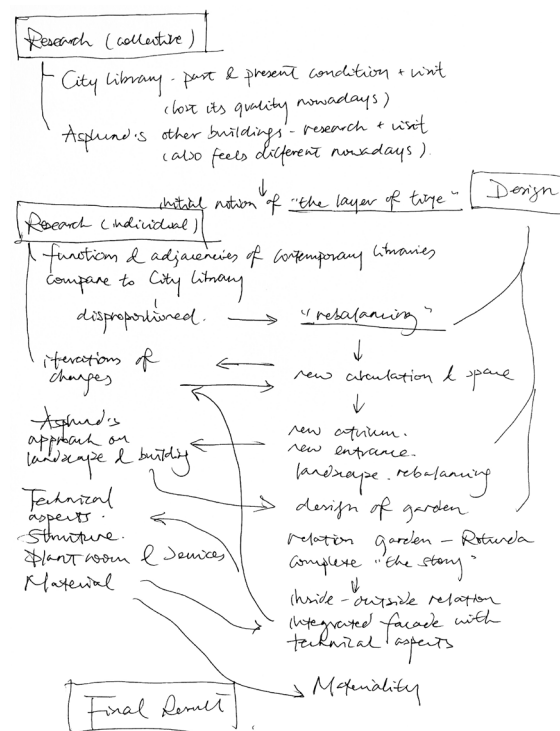 Research (collective)
City Library - past & present condition + visit
(lost its quality nowadays)
Asplund's other buildings - research + visit
(also feels different nowadays).
initial notion of "the layer of time"
Design
Research (individual)
functions & adjacencies of contemporary libraries
compare to City Library
disproportioned.
"rebalancing"
iterations of
changes
new circulation & space
Asplund's
approach on
landscape & building
new atrium.
new entrance.
landscape. rebalancing
design of garden
Technical
aspects.
Structure.
Plant room & Services
Material
relation garden - Rotunda
complete "the story"
inside - outside relation
integrated facade with
technical aspects
Materiality
Final Result